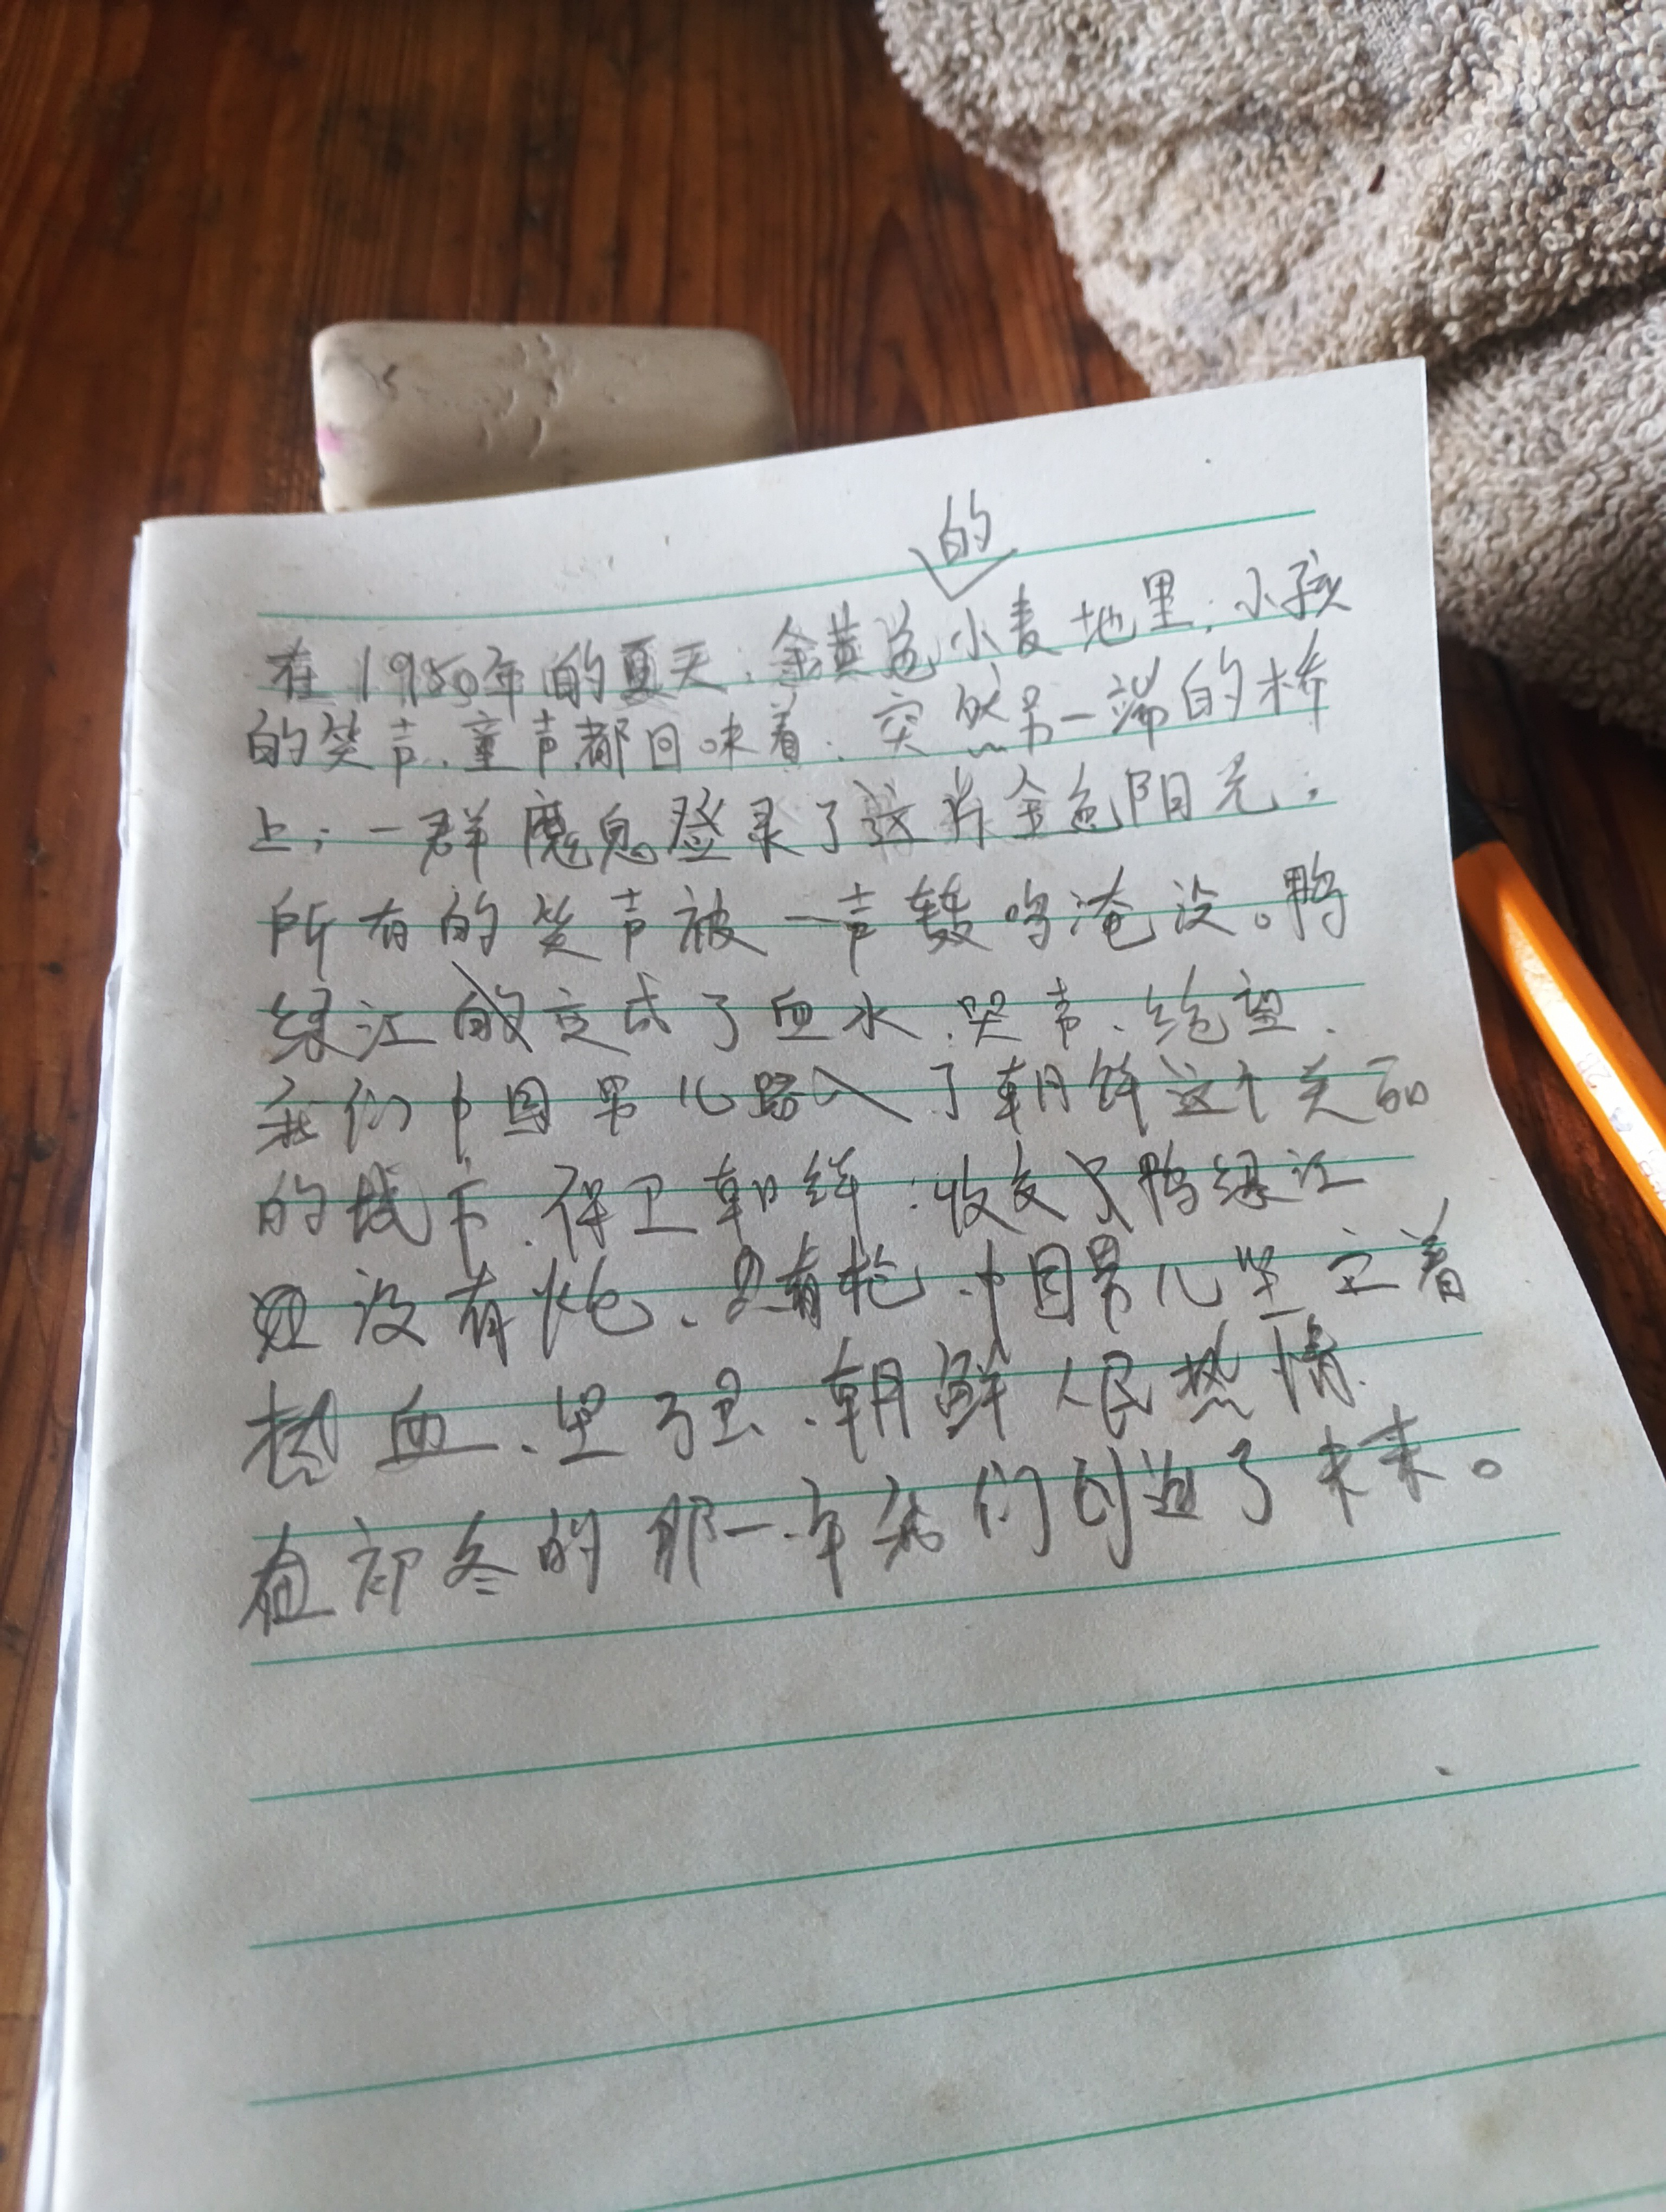 的
在1950年的夏天，金黄色小麦地里，小孩
的笑声、童声都回味着，突然另一端的桥
上，一群魔鬼登录了这片金色阳光，
所有的笑声被一声轰鸣淹没。鸭
绿江的变成了血水、哭声、绝望、
我们中国男儿踏入了朝鲜这个美丽
的城市、保卫朝鲜，收复鸭绿江
没有炮、只有枪、中国男儿坚定着
热血、坚强、朝鲜人民热情
在初冬的那一年我们创造了未来。